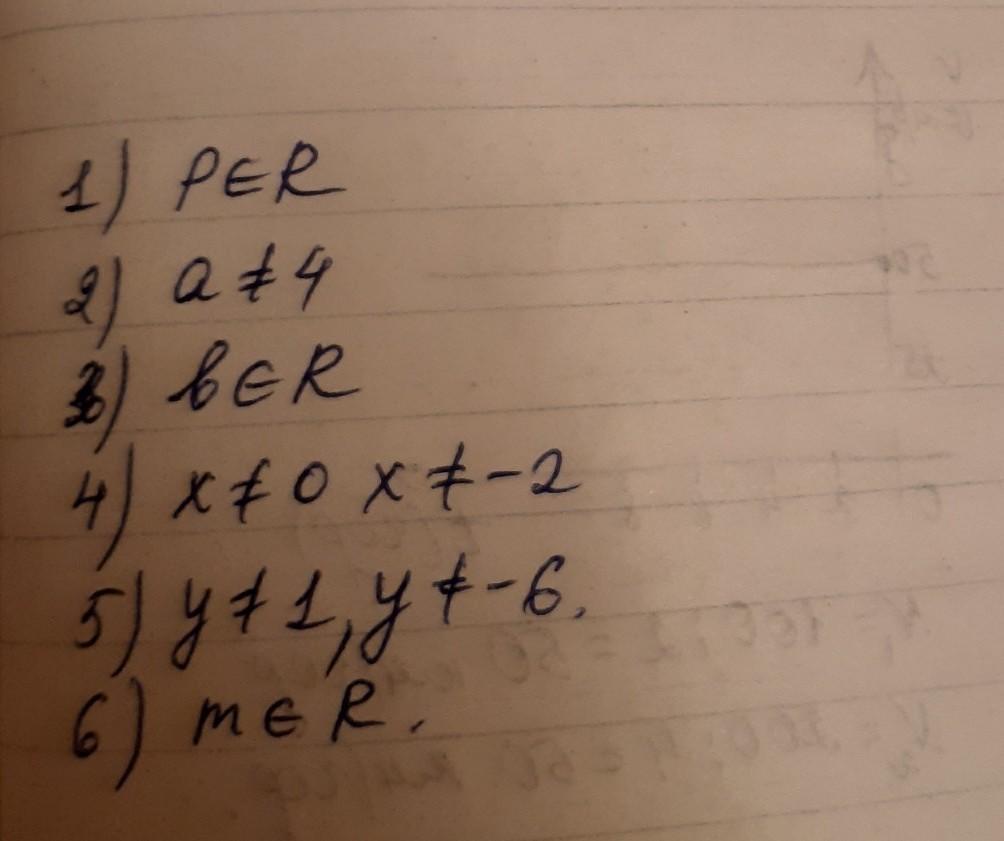 1) p∈R
2) a≠4
3) b∈R
4) x≠0 x≠-2
5) y≠1, y≠-6.
6) m∈R.